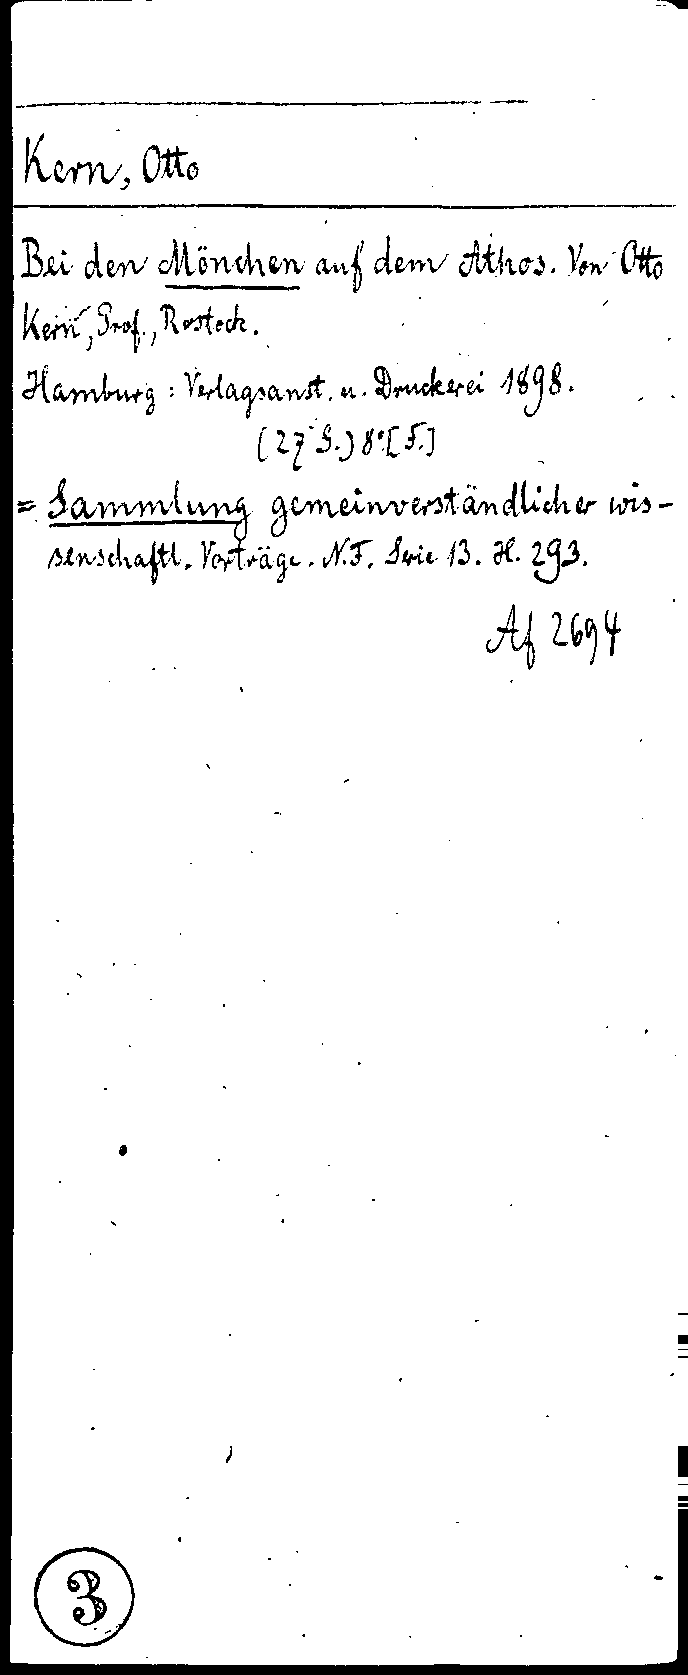 Kern, Otto
Bei den Mönchen auf dem Athos. Von Otto
Kern, Prof., Rostock.
Hamburg: Verlagsanst. u. Druckerei 1898.
(27 S.) 8°. [F.]
= Sammlung gemeinverständlicher wis-
senschaftl. Vorträge. N.F. Serie 13. H. 293.
Af 2694
3